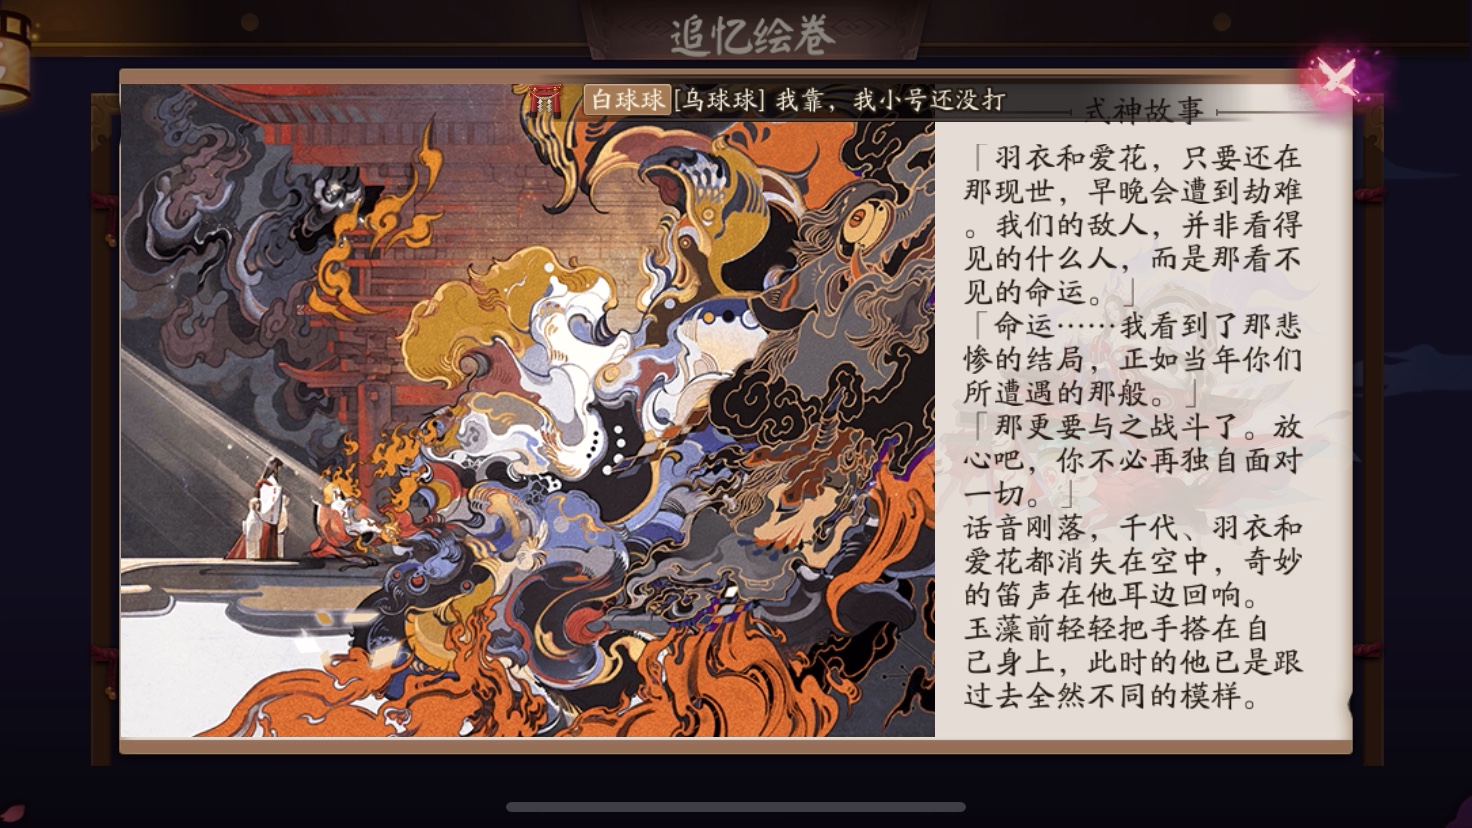 追忆绘卷
白球球 [乌球球] 我靠，我小号还没打
式神故事
「羽衣和爱花，只要还在
那现世，早晚会遭到劫难
。我们的敌人，并非看得
见的什么人，而是那看不
见的命运。」
「命运……我看到了那悲
惨的结局，正如当年你们
所遭遇的那般。」
「那更要与之战斗了。放
心吧，你不必再独自面对
一切。」
话音刚落，千代、羽衣和
爱花都消失在空中，奇妙
的笛声在他耳边回响。
玉藻前轻轻把手搭在自
己身上，此时的他已是跟
过去全然不同的模样。